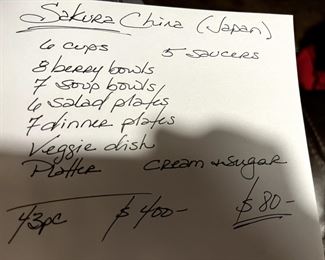 Sakura China (Japan)
6 cups 5 saucers
8 berry bowls
7 soup bowls
6 salad plates
7 dinner plates
Veggie dish
Platter cream + sugar
43pc $400- $80-